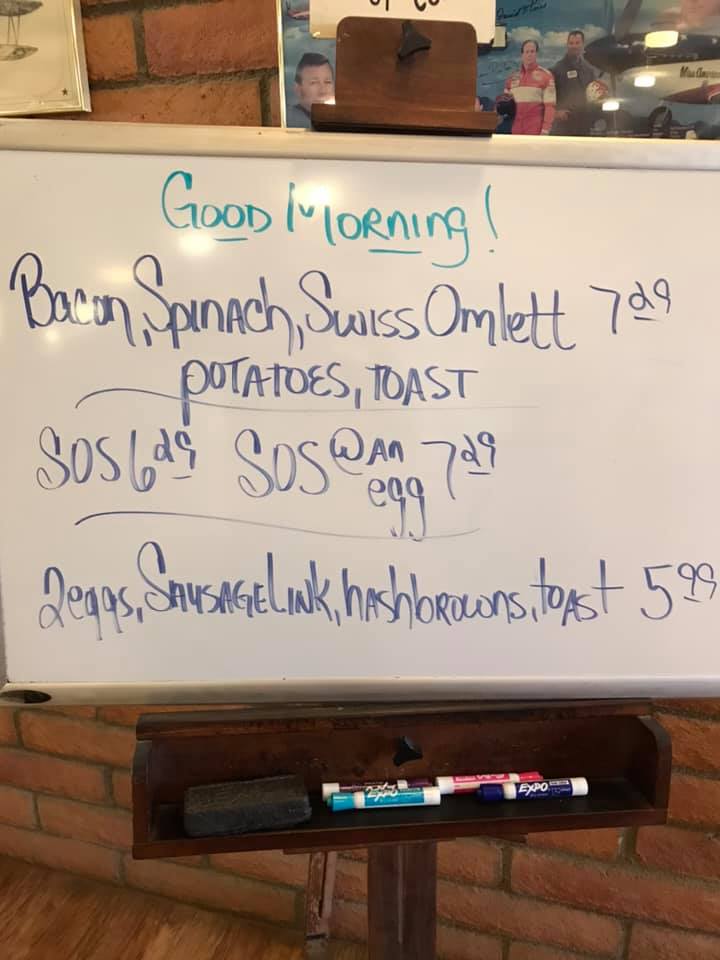 GOOD MORNING!
Bacon, Spinach, Swiss Omlett 7 29
POTATOES, TOAST
SOS 6 29 SOS @ An egg 7 29
2eggs, SAUSAGE LINK, hashbrowns, toast 5 99
EXPO EXPO